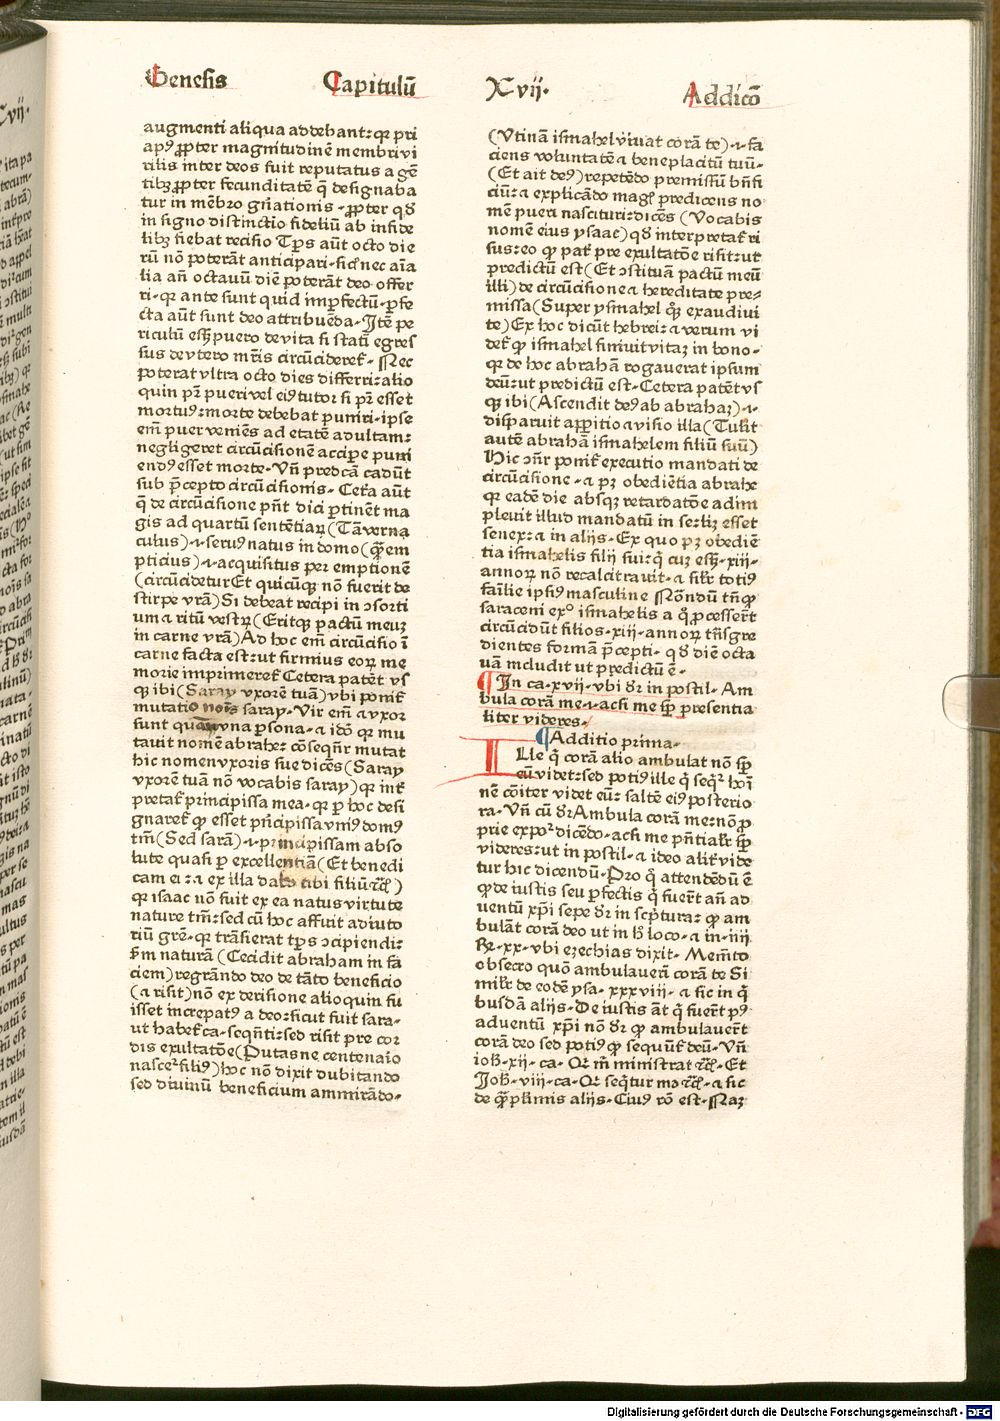 Genesis Capitulū Xvij. Addicō
augmenti aliqua addebant: qꝛ pri
apꝰ ꝓpter magnitudinē membri vi
rilis inter deos fuit reputatus a gē
tibꝫ ꝓpter fecunditatē q̄ designaba
tur in mēbro gn̄ationis. ꝓpter qd̛
in signo distinctio fidelium ab infide
libꝫ fiebat recisio Tp̄s aūt octo die
rū nō poterāt anticipari. sic̄ nec aīa
lia añ octauū diē poterāt deo offer
ri. qꝛ ante sunt quid imꝑfectū. ꝑfe
cta aūt sunt deo attribuēda. Itē pe
riculū esset puero de vita si statī egres
sus de vtero mr̄is circūcideret̄. Nec
poterat vltra octo dies differri: alio
quin pr̄ pueri vel eiꝰ tutor si pr̄ esset
mortuꝰ: morte debebat puniri. ipse
em̄ puer veniēs ad etatē adultam:
negligeret circūcisionē accipe puni
endꝰ esset morte. Vn̄ predcā cadūt
sub p̄cepto circūcisionis. Cet̄a aūt
q̄ de circūcisione pn̄t dici ꝑtinēt ma
gis ad quartū sentētiaꝝ (Tā verna
culus) .i. seruꝰ natus in domo (q̄ em
pticius) .i. acquisitus per emptionē
(circūcidetur Et quicūqꝫ nō fuerit de
stirpe vr̄a) Si debeat recipi in ↄsorti
um ⁊ ritū vestrū (Eritqꝫ pactū meuꝫ
in carne vr̄a) Ad hoc em̄ circūcisio ī
carne facta est: ut firmius eoꝝ me
morie imprimeret̄ Cetera patēt vs
qꝫ ibi (Saray vxorē tuā) vbi ponit̄
mutatio nois saray. Vir em̄ ⁊ vxor
sunt quasi vna ꝑsona. ⁊ idō qꝛ mu
tauit nomē abrahe: cōseqn̄r mutat
hic nomen vxoris sue dicēs (Saray
vxorē tuā nō vocabis saray) qꝛ int̄
pretat̄ principissa mea. qꝛ ꝑ hoc desi
gnaret̄ qꝙ esset pn̄cipissa vniꝰ domꝰ
tm̄ (Sed sarā) .i. principissam abso
lute quasi ꝑ excellentiā (Et benedi
cam ei: ⁊ ex illa dabo tibi filiū ⁊c̄)
qꝛ isaac nō fuit ex ea natus virtute
nature tm̄: sed cū hoc affuit adiuto
riū gr̄e. qꝛ trāsierat tp̄s ↄcipiendi:
scd̄m naturā (Cecidit abraham in fa
ciem) regrāndo deo de tāto beneficio
(⁊ risit) nō ex derisione alioquin fu
isset increpatꝰ a deo: sicut fuit sara.
ut habet̄ ca. seqn̄ti: sed risit pre cor
dis exultatōe (Putasne centenaīo
nascet̄ filiꝰ) hoc nō dixit dubitando
sed diuinū beneficium ammirādo.
(Vtinā ismahel viuat corā te) .i. fa
ciens voluntatē ⁊ beneplacitū tuū.
(Et ait deꝰ) repetēdo premissū bn̄fi
ciū: ⁊ explicādo magꝭ predicens no
mē pueri nascituri: dicēs (Vocabis
nomē eius ysaac) qd̛ interpretat̄ ri
sus: eo ꝙ pat̄ pre exultatōe risit: ut
predictū est (Et ↄstituā pactū meū
illi) de circūcisione ⁊ hereditate pre⸗
missa (Super ysmahel qꝫ exaudiui
te) Ex hoc dicūt hebrei: ⁊ verum vi
det̄ ꝙ ismahel finiuit vitaꝫ in bono.
qꝛ de hoc abrahā rogauerat ipsum
deū: ut predictū est. Cetera patēt vs
qꝫ ibi (Ascendit deꝰ ab abrahaꝫ) .i.
disparuit apparitio ⁊ visio illa (Tulit
autē abrahā ismahelem filiū suū)
Hic ↄn̄r ponit̄ executio mandati de
circūcisione. ⁊ pꝫ obediētia abrahe
qꝛ eadē die absqꝫ retardatōe adim
pleuit illud mandatū in se: lꝫ esset
senex: ⁊ in alijs. Ex quo pꝫ obediē
tia ismahelis filij sui: q̄ cuꝫ esset .xiij.
annoꝝ nō recalcitrauit. ⁊ silr̄ totiꝰ
familie ipsiꝰ masculine Nōndū tn̄ ꝙ
saraceni exn̄ ismahelis a q̄ ꝓcesser̄t
circūcidūt filios .xiij. annoꝝ tn̄sgre
dientes formā p̄cepti. qd̛ diē octa
uā includit ut predictū ē.
¶ In ca. xvij. vbi dr̄ in postil. Am
bula corā me .i. acsi me sp̄ presentia
liter videres.
¶ Additio prima.
Ille q̄ corā alio ambulat nō sp̄
eū videt: sed potiꝰ ille q̄ seqr̄ hoī
nē cōiter videt eū: saltē eiꝰ posterio
ra. Vn̄ cū dr̄ Ambula corā me: nō ꝓ
prie expoꝛ dicēdo. acsi me pn̄tialr̄ sp̄
videres: ut in postil. ⁊ ideo alit̄ vide
tur hic dicendū. Pro q̄ attendēdū ē
ꝙ de iustis seu ꝑfectis q̄ fuer̄t añ ad
uentū xp̄i sepe dr̄ in scp̄tura: ꝙ am
bulāt corā deo ut in h̄ loco. ⁊ in .iiij
Rꝫ. xx. vbi ezechias dixit. Mem̄to
obsecro quō ambulauerī corā te Si
milr̄ de eodē ysa. xxxviij. ⁊ sic in q̄
busdā alijs. De iustis āt q̄ fuer̄t pꝰ
aduentū xp̄i nō dr̄ ꝙ ambulauer̄t
corā deo sed potiꝰ ꝙ sequūt̄ deū. Vn̄
ioh̄. xij. ca. Qꝛ m̄ ministrat ⁊c̄. Et
Ioh̄. viij. ca. Qꝛ seq̄tur me ⁊c̄. ⁊ sic
de q̄ plr̄imis alijs. Cuiꝰ rō est. Naꝫ
Digitalisierung gefördert durch die Deutsche Forschungsgemeinschaft - DFG